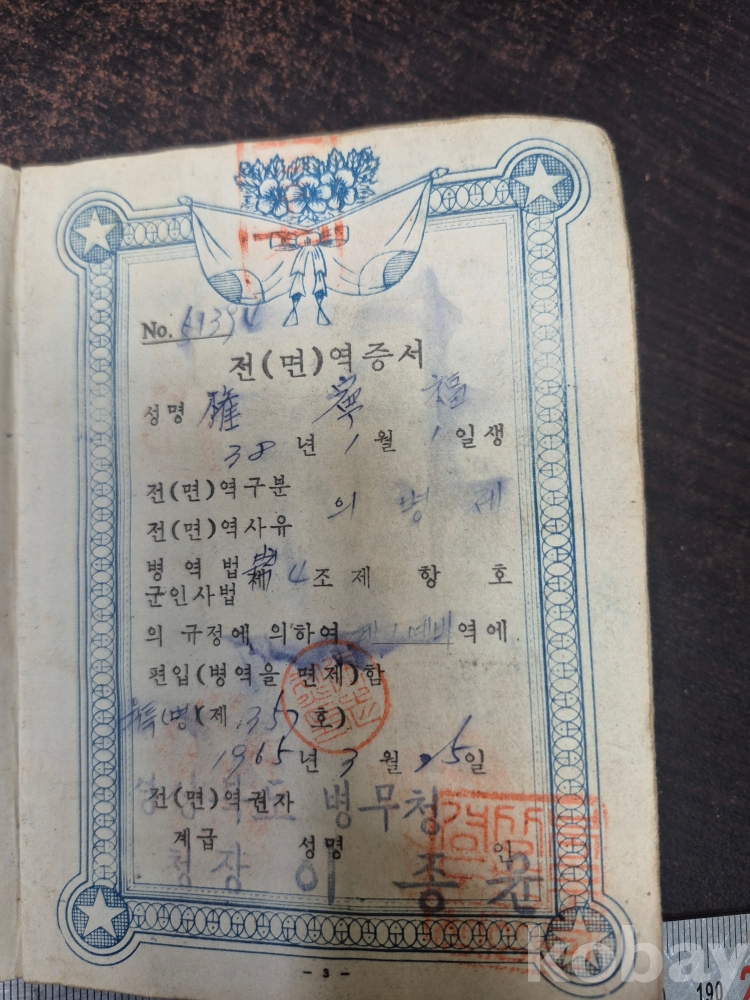 No. 61394
전(면)역증서
성명 權 寧 福
38 년 1 월 1 일생
전(면)역구분
의 병 제
전(면)역사유
병 역 법
군인사법 제 4 조 제 항 호
의 규정에 의하여 제1예비 역에
편입(병역을 면제)함
(명)(제 35 호)
1965 년 3 월 25 일
전(면)역권자 병무청
계급 성명 인
청장 이 종 윤
- 3 -
kobay
190